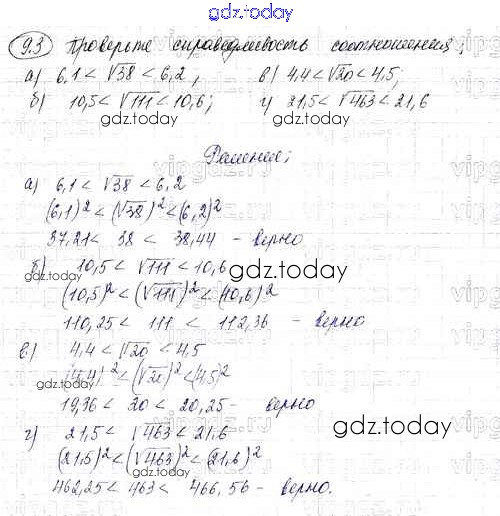 gdz.today
9.3 Проверьте справедливость соотношения;
а) 6,1 < √38 < 6,2, в) 4,4 < √20 < 4,5;
б) 10,5 < √111 < 10,6; г) 21,5 < √463 < 21,6
gdz.today gdz.today
Решение;
а) 6,1 < √38 < 6,2
(6,1)² < (√38)² < (6,2)²
37,21 < 38 < 38,44 - верно
б) 10,5 < √111 < 10,6 gdz.today
(10,5)² < (√111)² < (10,6)²
110,25 < 111 < 112,36 - верно
в) 4,4 < √20 < 4,5
gdz.today
(4,4)² < (√20)² < (4,5)²
19,36 < 20 < 20,25 - верно
г) 21,5 < √463 < 21,6 gdz.today
(21,5)² < (√463)² < (21,6)²
gdz.today
462,25 < 463 < 466,56 - верно.